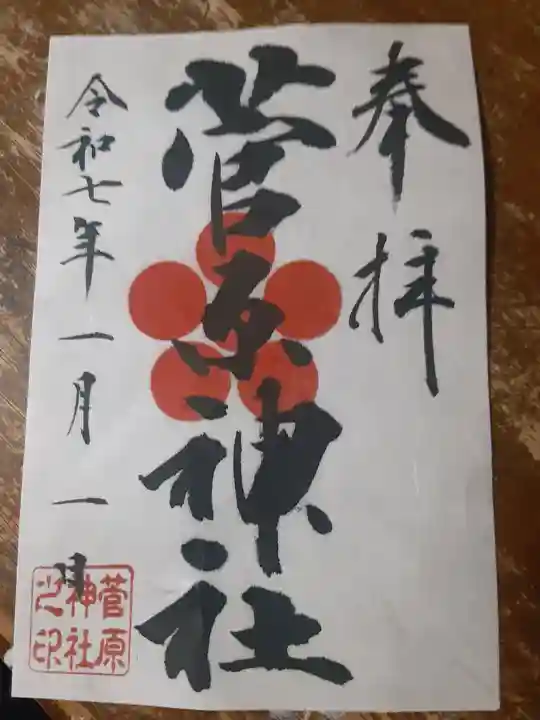 奉拝
菅原神社
令和七年一月一日
菅原
神社
之印